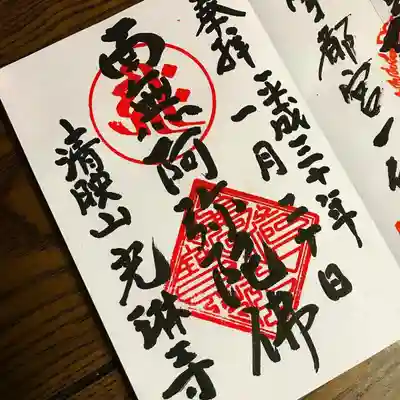 奉拝
平成三十年
一月二十日
南無阿弥陀佛
清映山 光琳寺
宇都宮